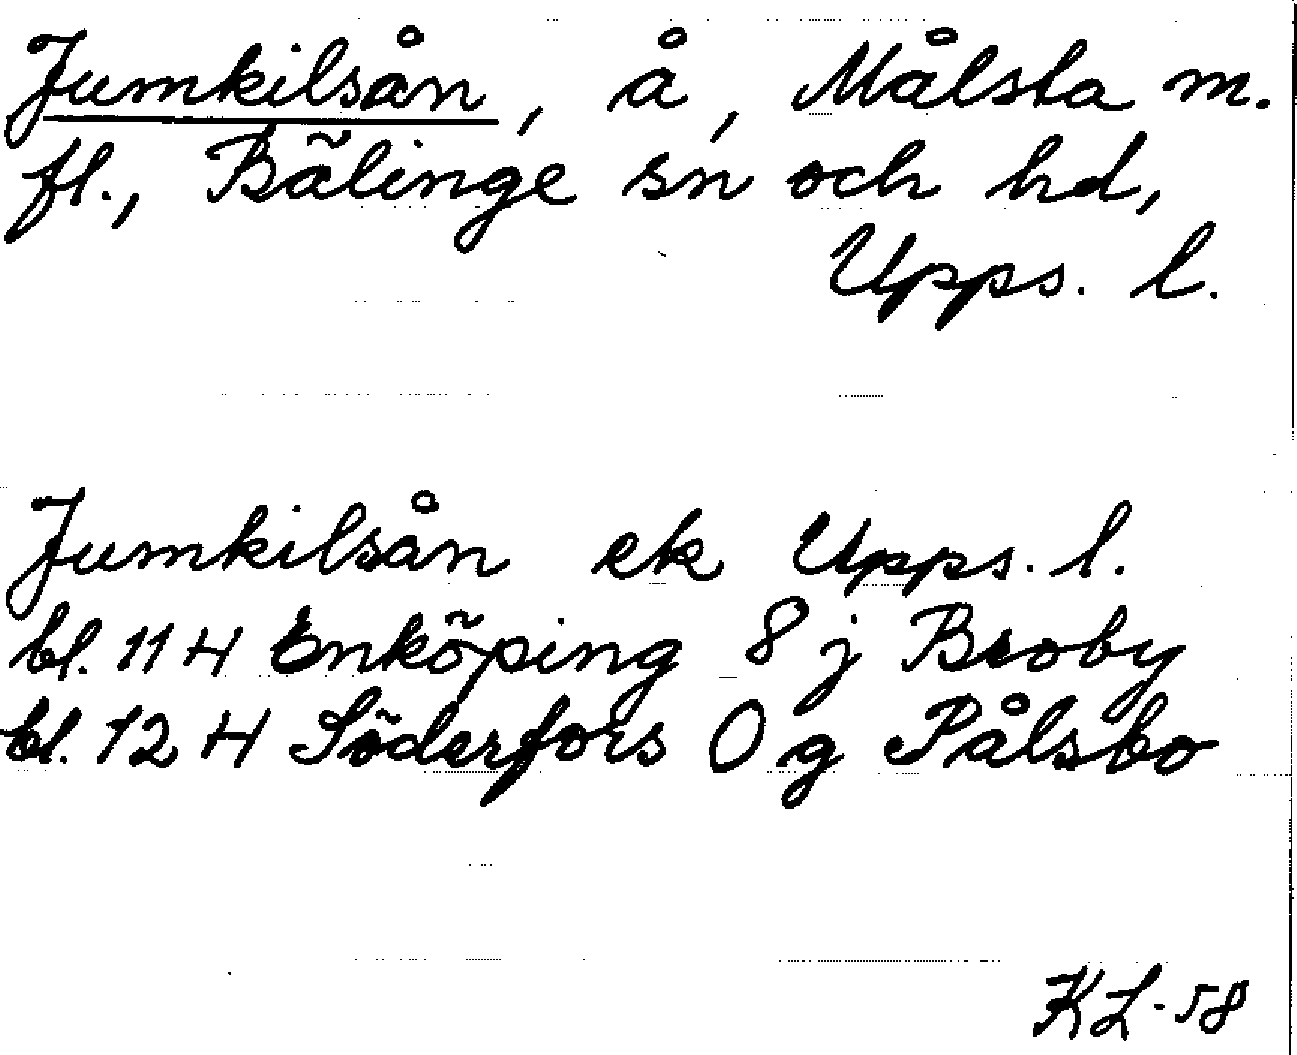 Jumkilsån, å, Målsta m.
fl., Bälinge sn och hd,
Upps. l.
Jumkilsån ek Upps. l.
bl. 114 Enköping 8 j Broby
bl. 124 Söderfors 0 g Pålsbo
KL-58